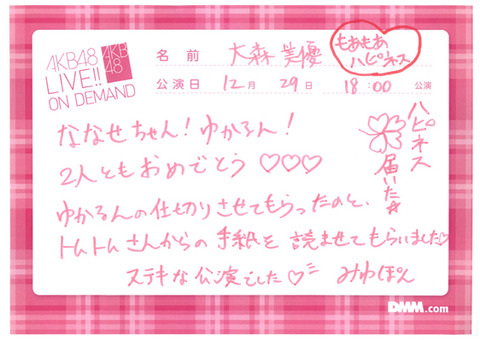 AKB48
LIVE!!
ON DEMAND
AKB
48
名前 大森美優
もあもあ
ハピネス
公演日 12月29日 18:00 公演
ななせちゃん!ゆかるん!
2人ともおめでとう♡♡♡
ハピネス
届いた☆
ゆかるんの仕切りさせてもらったのと、
トムトムさんからの手紙を読ませてもらいました♡
ステキな公演でした♡ みゆぽん
DMM.com